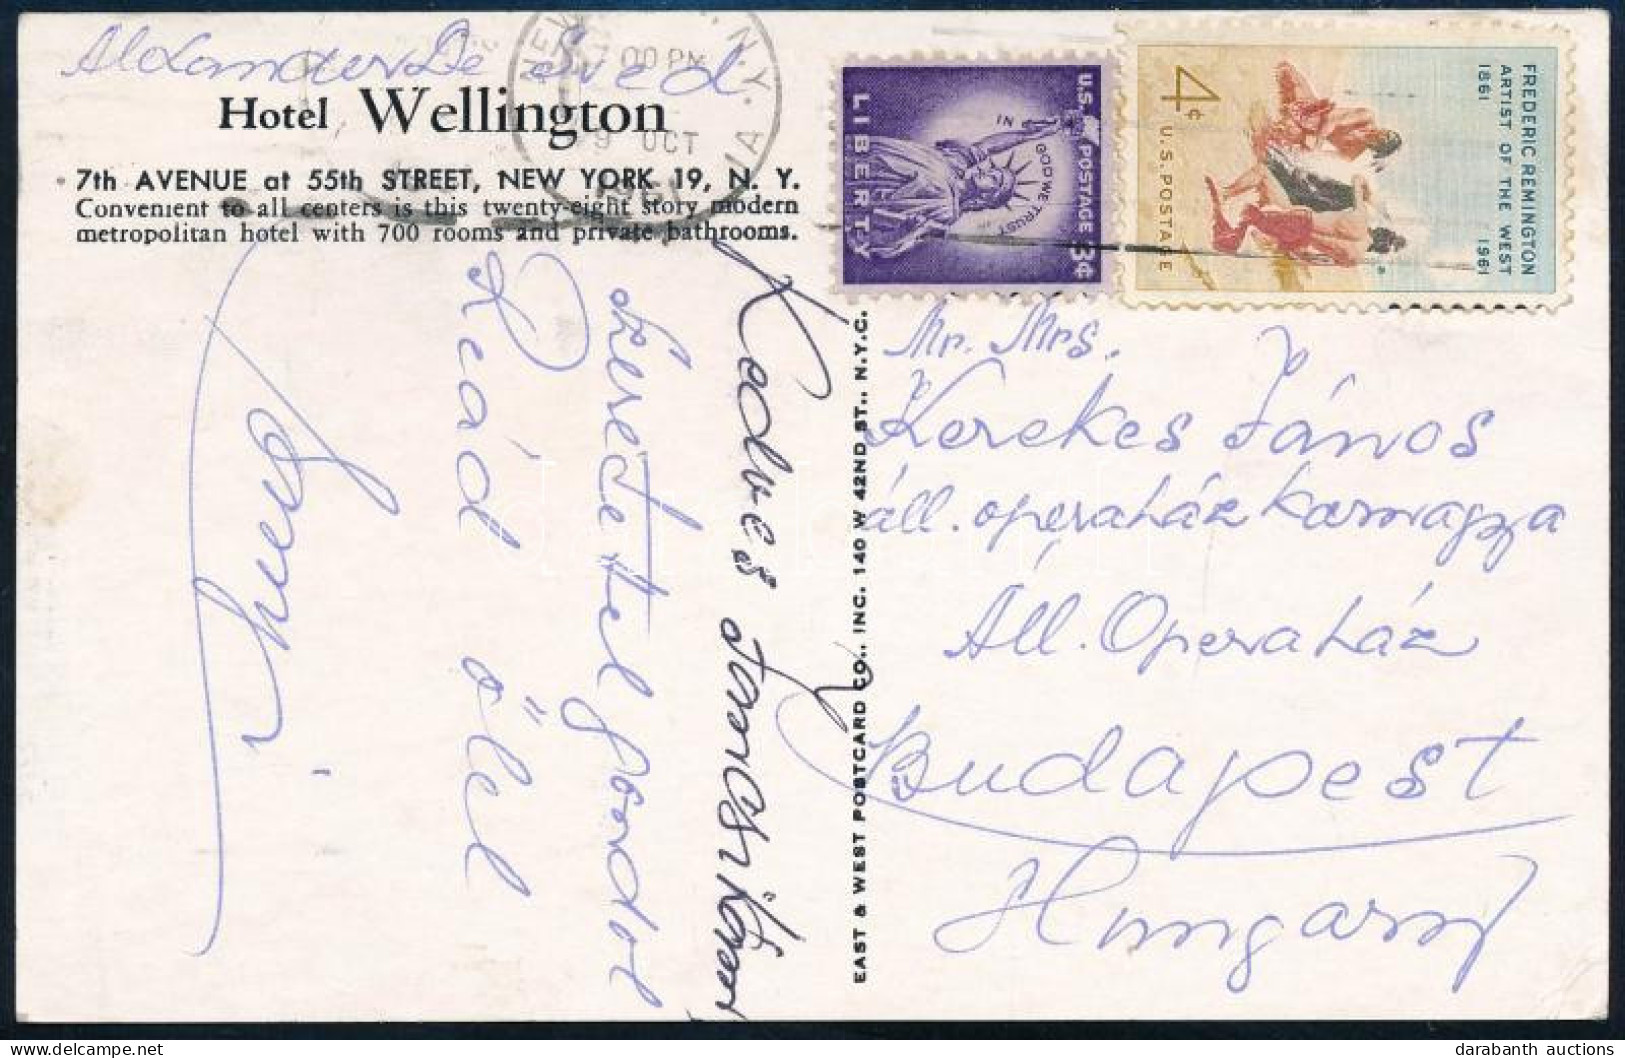 Alexander De Sved
Hotel Wellington
7th AVENUE at 55th STREET, NEW YORK 19, N. Y.
Convenient to all centers is this twenty-eight story modern
metropolitan hotel with 700 rooms and private bathrooms.
7 00 PM
9 OCT
N.Y.
U.S. POSTAGE 3¢
IN GOD WE TRUST
LIBERTY
FREDERIC REMINGTON
ARTIST OF THE WEST
1861 1961
4¢
U.S. POSTAGE
Kedves
szeretettel gondol
Reád
ölel
EAST & WEST POSTCARD CO., INC. 140 W 42ND ST., N.Y.C.
Mr. Mrs.
Kerekes János
áll. operaház karnagya
Áll. Operaház
Budapest
Hungary
darabanth auctions